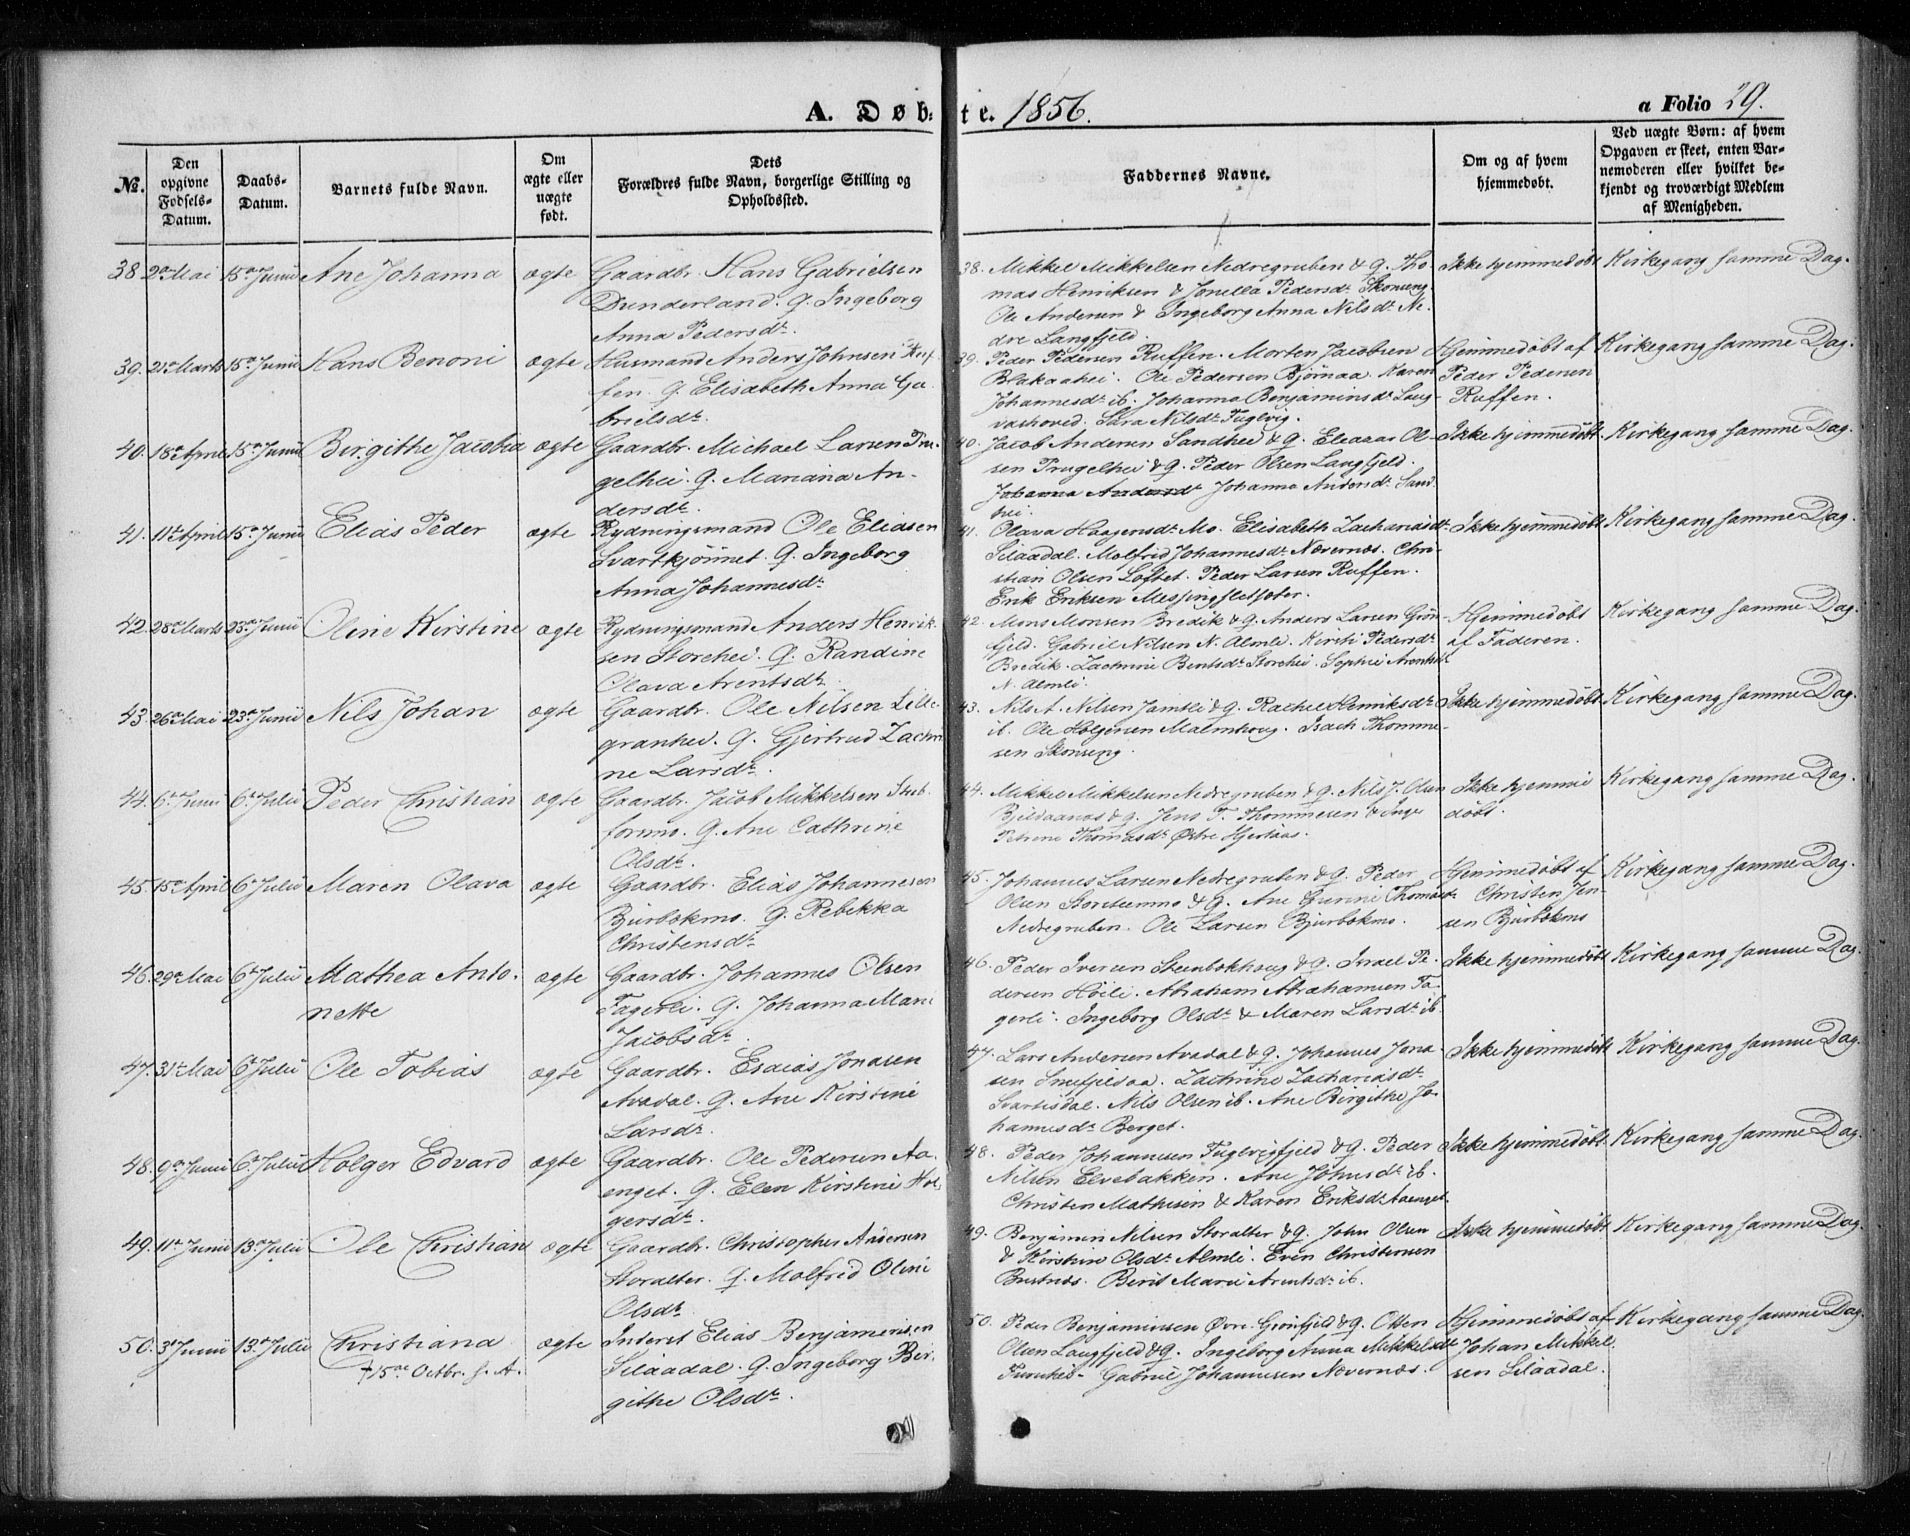 A. Døb: te. 1856.
a Folio 29.
№.
Den opgivne Fødsels-Datum.
Daabs-Datum.
Barnets fulde Navn.
Om ægte eller uægte født.
Dets Forældres fulde Navn, borgerlige Stilling og Opholdssted.
Faddernes Navne.
Om og af hvem hjemmedøbt.
Ved uægte Børn: af hvem Opgaven er skeet, enten Barnemoderen eller hvilket bekjendt og troværdigt Medlem af Menigheden.
38. 2den Mai 15de Junii Ane Johanna ægte Gaardbr. Hans Gabrielsen
Dunderland. Q. Ingeborg
Anna Pedersdr.
38. Mikkel Mikkelsen Nedregruben & Q. Tho-
mas Henriksen & Jonetta Pedersdr. Skonseng
Ole Andersen & Ingeborg Anna Nilsdr. Ne-
dre Langfjeld.
Ikke hjemmedøbt
Kirkegang samme Dag.
39. 21de Marts 15de Junii Hans Benoni ægte Husmand Anders Johnsen Ruf-
fen. Q. Elisabeth Anna Ga-
brielsdr.
39. Peder Pedersen Ruffen. Morten Jacobsen
Blakaahei. Ole Pedersen Bjørnaa. Karen
Johannesdr. ib. Johanna Benjaminsdr. Lang-
vashoved. Sara Nilsdr. Fuglvig.
Hjemmedøbt af
Peder Pedersen
Ruffen.
Kirkegang samme Dag.
40. 18de April 15de Junii Birgithe Jacobia ægte Gaardbr. Michael Larsen Pru-
gelhei. Q. Mariana An-
dersdr.
40. Jacob Andersen Sandhei & Q. Eleazar Ol-
sen Prugelhei & Q. Peder Olsen Langfjeld.
Johanna Andersdr Johanna Andersdr. Sand-
hei.
Ikke hjemmedøbt
Kirkegang samme Dag.
41. 11te April 15de Junii Elias Peder ægte Rydningsmand Ole Eliasen
Svartkjønnet. Q. Ingeborg
Anna Johannesdr.
41. Olava Haagensdr. Mo. Elisabeth Zachariasdr.
Silaadal. Molfrid Johannesdr. Nævernæs. Chri-
stian Olsen Loftet. Peder Larsen Ruffen.
Erik Eriksen Messingsletfoter.
Ikke hjemmedøbt
Kirkegang samme Dag.
42. 28de Marts 23de Junii Oline Kirstine ægte Rydningsmand Anders Henrik-
sen Storehei. Q. Randine
Olava Arentsdr.
42. Mons Monsen Bredik & Q. Anders Larsen Grøn-
fjeld. Gabriel Nilsen N. Almli. Kirsti Pedersdr.
Bredik. Zachrine Bentsdr. Storehei. Sophie Arentsdr.
N. Almli.
Hjemmedøbt
af Faderen.
Kirkegang samme Dag.
43. 26de Mai 23de Junii Nils Johan ægte Gaardbr. Ole Nilsen Lille-
granhei. Q. Gjertrud Zachri-
ne Larsdr.
43. Nils A. Nilsen Jamtli & Q. Rachel Henriksdr.
ib. Ole Holgersen Malmhoug. Isach Thomme-
sen Skonseng.
Ikke hjemmedøbt
Kirkegang samme Dag.
44. 6te Junii 6te Julii Peder Christian ægte Gaardbr. Jacob Mikkelsen Stub-
formo. Q. Ane Cathrine
Olsdr.
44. Mikkel Mikkelsen Nedregruben & Q. Nils J. Olsen
Bjeldaanæs & Q. Jens T. Thommesen & Inge
Petrine Thomasdr. Østre Hjertaas.
Ikke hjemme
døbt.
Kirkegang samme Dag.
45. 15de April 6te Julii Maren Olava ægte Gaardbr. Elias Johannesen
Bjurbækmo. Q. Rebekka
Christensdr.
45. Johannes Larsen Nedregruben & Q. Peder
Olsen Storteemo & Q. Ane Gurine Thomasdr
Nedregruben. Ole Larsen Bjurbækmo.
Hjemmedøbt af
Christen Jen-
sen Bjurbækmo
Kirkegang samme Dag.
46. 29de Mai 6te Julii Mathea Anto-
nette
ægte Gaardbr. Johannes Olsen
Fagerli. Q. Johanna Marie
Jacobsdr.
46. Peder Iversen Steenbækhaug & Q. Israel Pe-
dersen Høili. Abraham Abrahamsen Fa-
gerli. Ingeborg Olsdr. & Maren Larsdr. ib.
Ikke hjemmedøbt
Kirkegang samme Dag.
47. 31te Mai 6te Julii Ole Tobias ægte Gaardbr. Esaias Jonasen
Avadal. Q. Ane Kirstine
Larsdr.
47. Lars Andersen Avadal & Q. Johannes Jona-
sen Snefjeldaa. Zachrine Zachariasdr.
Svartisdal. Nils Olsen ib. Ane Birgithe Jo-
hannesdr. Berget.
Ikke hjemmedøbt
Kirkegang samme Dag.
48. 9de Junii 6te Julii Holger Edvard ægte Gaardbr. Ole Pedersen Aa-
enget. Q. Elen Kirstine Hol-
gersdr.
48. Peder Johannesen Fuglvigfjeld & Q. Peder
Nilsen Elvebakken. Ane Johnsdr. ib.
Christen Mathisen & Karen Eriksdr. Aaenget.
Ikke hjemmedøbt
Kirkegang samme Dag.
49. 11te Junii 13de Julii Ole Christian ægte Gaardbr. Christopher Andersen
Storalter. Q. Molfrid Oline
Olsdr.
49. Benjamin Nilsen Storalter & Q. John Olsen
& Kirstine Olsdr. Almli. Even Christensen
Bustnæs. Berit Marie Arentsdr. ib.
Ikke hjemmedøbt
Kirkegang samme Dag.
50. 3de Junii 13de Julii Christiana
† 15de Octbr. s. A.
ægte Inderst Elias Benjaminsen
Silaadal. Q. Ingeborg Bir-
githe Olsdr.
50. Peder Benjaminsen Øvre. Grønfjeld & Q. Olsen
Olsen Langfjeld & Q. Ingeborg Anna Mikkelsdr
Gabriel Johannesen Nævernæs.
Hjemmedøbt af
Johan Mikkel-
sen Silaadal.
Kirkegang samme Dag.